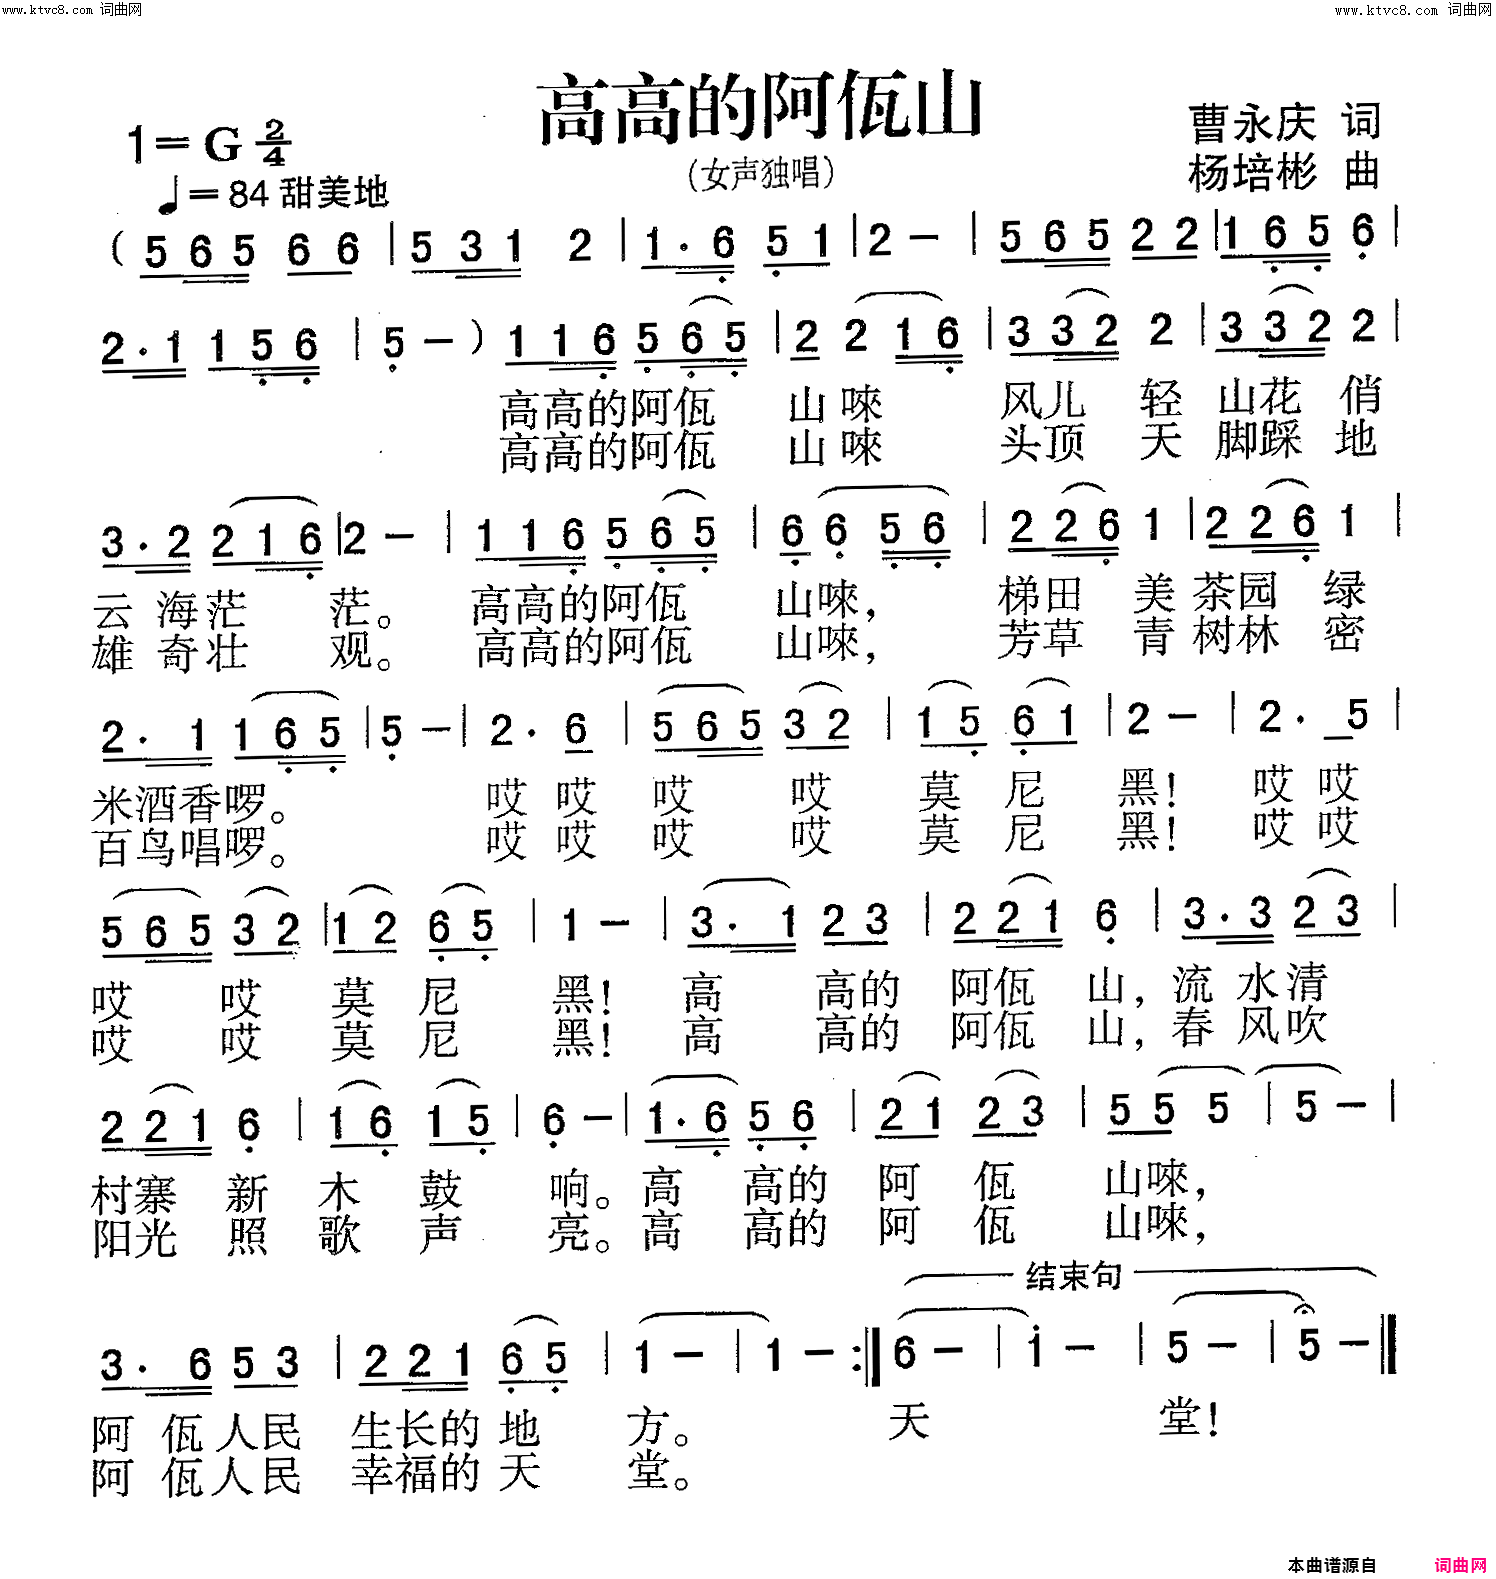 www.ktvc8.com 词曲网
www.ktvc8.com 词曲网
高高的阿佤山
(女声独唱)
1=G 2/4
♩=84 甜美地
曹永庆 词
杨培彬 曲
( 5 6 5 6 6 | 5 3 1 2 | 1· 6 5 1 | 2 – | 5 6 5 2 2 | 1 6 5 6 |
2· 1 1 5 6 | 5 – ) 1 1 6 5 6 5 | 2 2 1 6 | 3 3 2 2 | 3 3 2 2 |
高高的阿佤 山唻 风儿 轻 山花 俏
高高的阿佤 山唻 头顶 天 脚踩 地
3· 2 2 1 6 | 2 – | 1 1 6 5 6 5 | 6 6 5 6 | 2 2 6 1 | 2 2 6 1 |
云 海茫 茫。 高高的阿佤 山唻, 梯田 美 茶园 绿
雄 奇壮 观。 高高的阿佤 山唻, 芳草 青 树林 密
2· 1 1 6 5 | 5 – | 2· 6 | 5 6 5 3 2 | 1 5 6 1 | 2 – | 2· 5 |
米酒香啰。 哎 哎 哎 哎 莫 尼 黑! 哎 哎
百鸟唱啰。 哎 哎 哎 哎 莫 尼 黑! 哎 哎
5 6 5 3 2 | 1 2 6 5 | 1 – | 3· 1 2 3 | 2 2 1 6 | 3· 3 2 3 |
哎 哎 莫 尼 黑! 高 高的 阿佤 山, 流 水清
哎 哎 莫 尼 黑! 高 高的 阿佤 山, 春 风吹
2 2 1 6 | 1 6 1 5 | 6 – | 1· 6 5 6 | 2 1 2 3 | 5 5 5 | 5 – |
村寨 新 木 鼓 响。 高 高的 阿 佤 山唻,
阳光 照 歌 声 亮。 高 高的 阿 佤 山唻,
结束句
3· 6 5 3 | 2 2 1 6 5 | 1 – | 1 – :‖ 6 – | i – | 5 – | 5 – ‖
阿 佤人民 生长的 地 方。 天 堂!
阿 佤人民 幸福的 天 堂。
本曲谱源自 词曲网